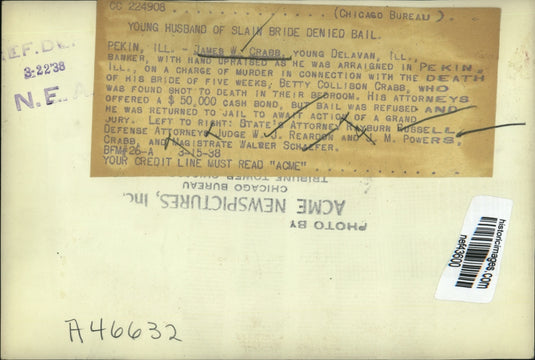 CC 224908 . . . . . . . . . . . . . . . (CHICAGO BUREAU)
YOUNG HUSBAND OF SLAIN BRIDE DENIED BAIL.
PEKIN, ILL. - JAMES W. CRABB, YOUNG DELAVAN, ILL.,
BANKER, WITH HAND UPRAISED AS HE WAS ARRAIGNED IN PEKIN,
ILL., ON A CHARGE OF MURDER IN CONNECTION WITH THE DEATH
OF HIS BRIDE OF FIVE WEEKS, BETTY COLLISON CRABB, WHO
WAS FOUND SHOT TO DEATH IN THEIR BEDROOM. HIS ATTORNEYS
OFFERED A $50,000 CASH BOND, BUT BAIL WAS REFUSED AND
HE WAS RETURNED TO JAIL TO AWAIT ACTION OF A GRAND
JURY. LEFT TO RIGHT: STATE'S ATTORNEY RAYBURN RUSSELL
DEFENSE ATTORNEYS JUDGE W. J. REARDON AND J. M. POWERS,
CRABB, AND MAGISTRATE WALMER SCHAEFER.
BFM#26-A 3-15-38
YOUR CREDIT LINE MUST READ "ACME" . . . . . . . .
REF. DE
3-22-38
N. E. A
PHOTO BY
ACME NEWSPICTURES, Inc.
CHICAGO BUREAU
TRIBUNE TOWER
historicimages.com
nef43600
A46632